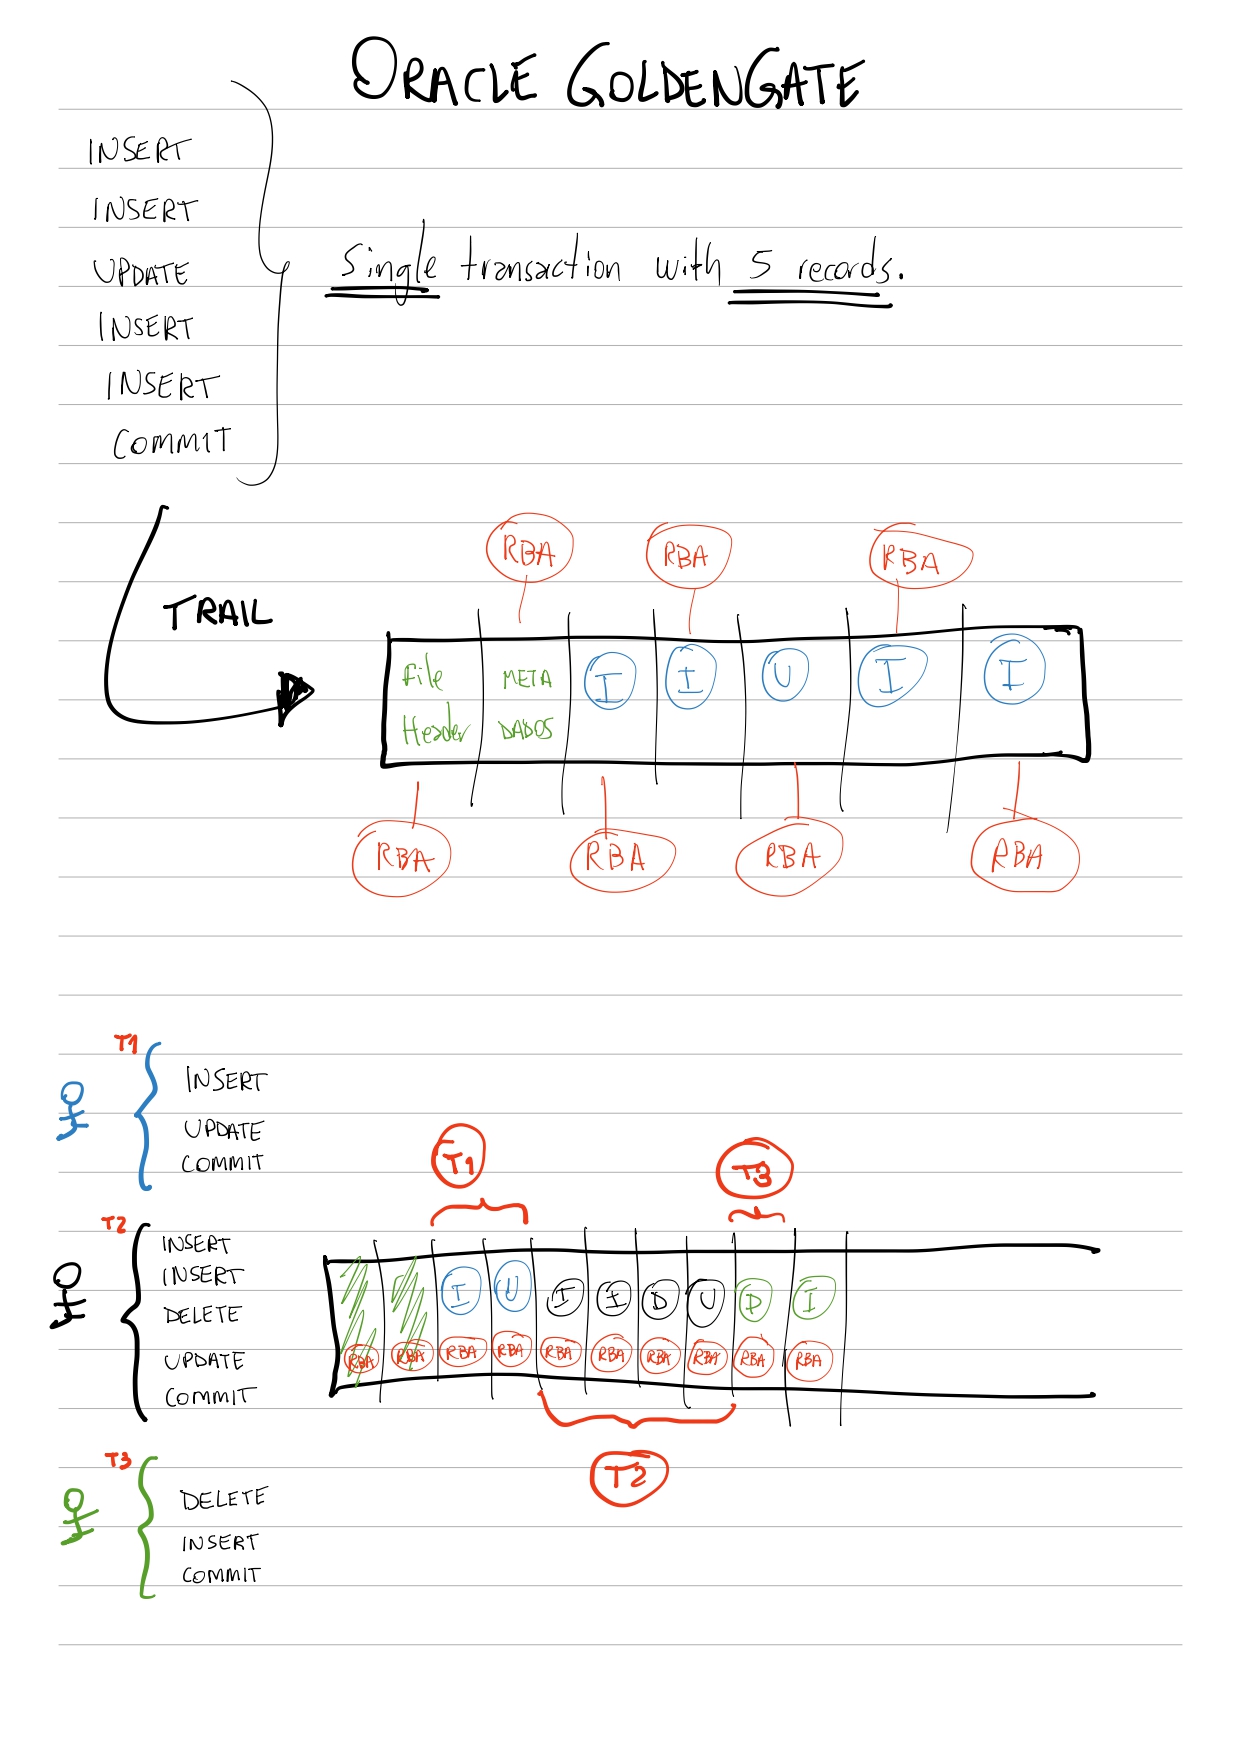 ORACLE GOLDENGATE
INSERT
INSERT
UPDATE
INSERT
INSERT
COMMIT
Single transaction with 5 records.
TRAIL
RBA RBA RBA
File Header
META DADOS
I I U I I
RBA RBA RBA RBA
T1
INSERT
UPDATE
COMMIT
T2
INSERT
INSERT
DELETE
UPDATE
COMMIT
T3
DELETE
INSERT
COMMIT
T1 T3
I U I I D U D I
RBA RBA RBA RBA RBA RBA RBA RBA RBA RBA
T2